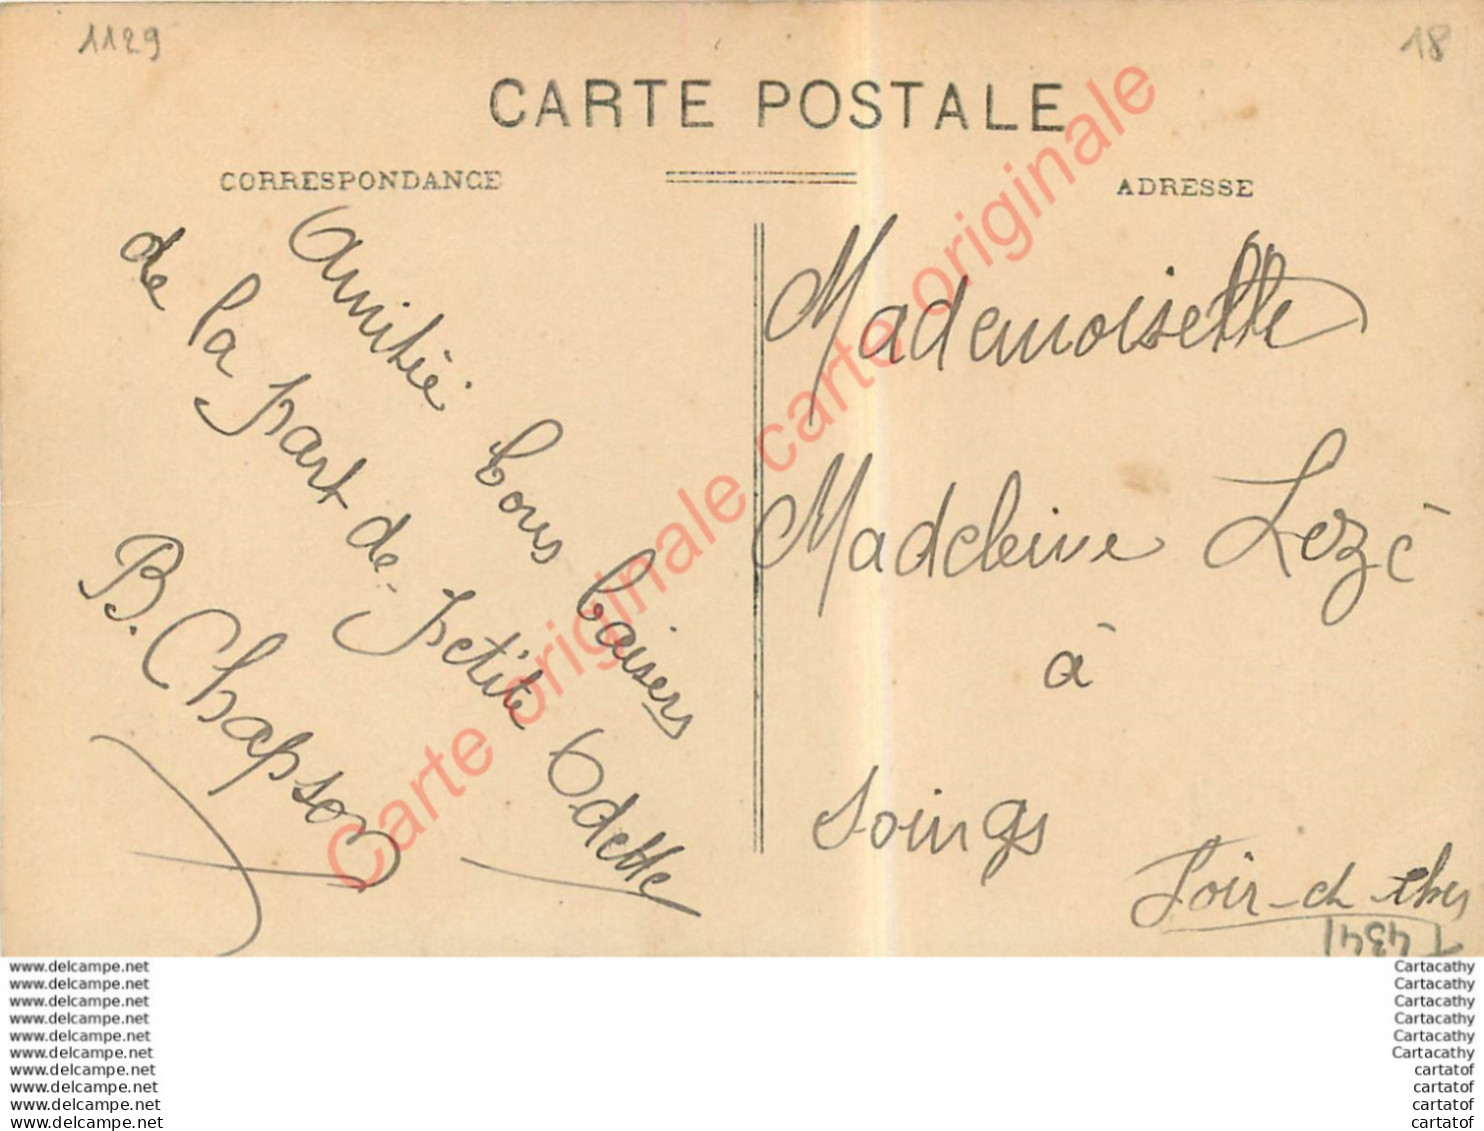 1129
18
CARTE POSTALE
CORRESPONDANCE
ADRESSE
Amitié bons baisers
de la part de petite Odette
B. Chapson
Mademoiselle
Madeleine Lezé
à
Soings
Loir-et-cher
T 4341
Carte originale carte originale
www.delcampe.net
www.delcampe.net
www.delcampe.net
www.delcampe.net
www.delcampe.net
www.delcampe.net
www.delcampe.net
www.delcampe.net
www.delcampe.net
www.delcampe.net
Cartacathy
Cartacathy
Cartacathy
Cartacathy
Cartacathy
Cartacathy
cartatof
cartatof
cartatof
cartatof